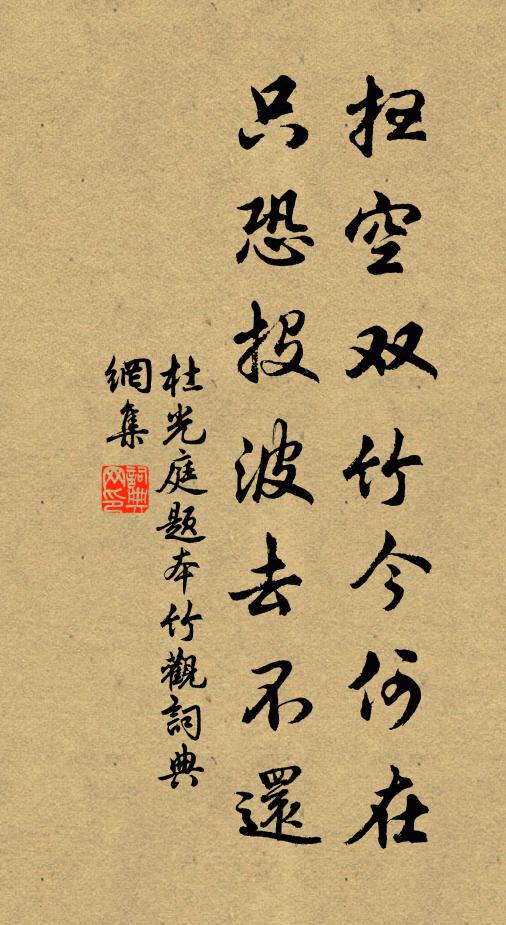 扫空双竹今何在
只恐投波去不還
杜光庭题本竹觀詞典
網集
詞典
网印